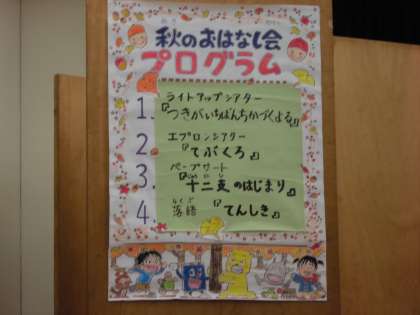 秋のおはなし会
プログラム
1. ライトアップシアター
『つきがいちばんちかづくよる』
2. エプロンシアター
『てぶくろ』
3. ペープサート
『十二支のはじまり』
4. 落語 『てんしき』